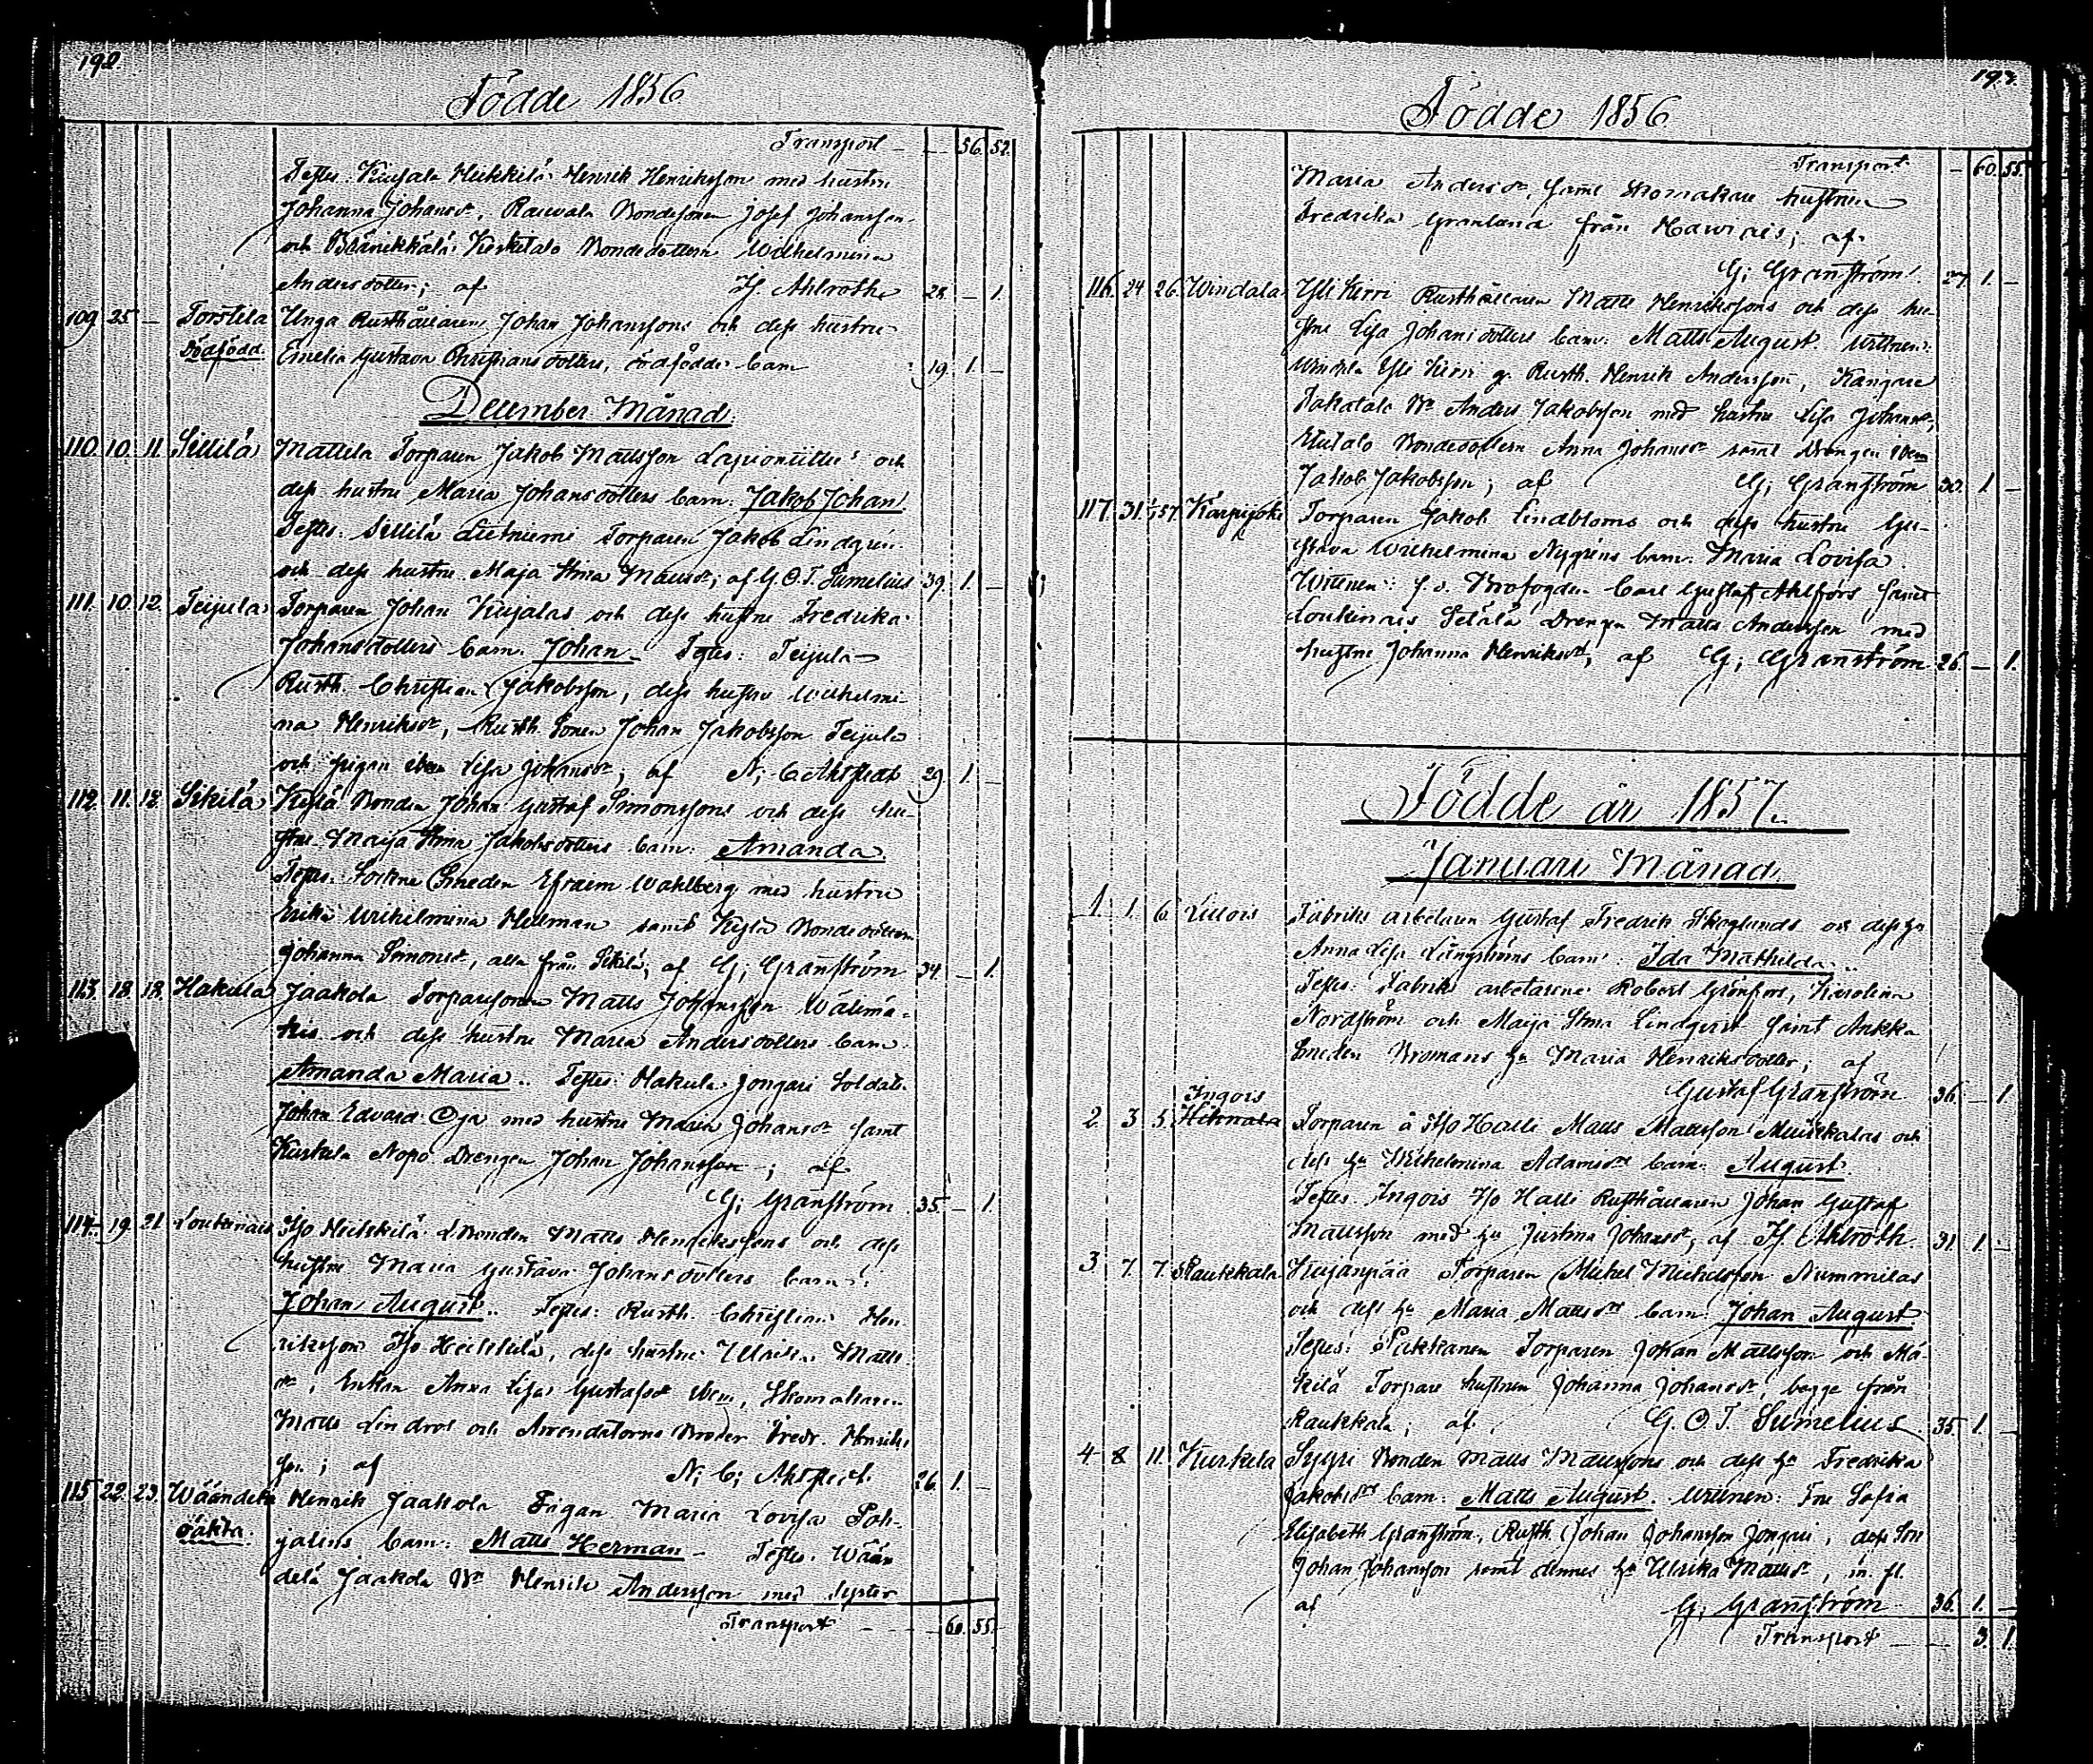 192.
Födde 1856
Transport - 56. 52.
Testes: Heikkilä Henrik Henriksson med hustru
Johanna Johansdr, Raevala Bondesonen Josef Johansson
och Kerkitalo Bondedottern Wilhelmina
Andersdotter; af Ahlroth 28. - 1.
109 25 - Torstila Unga Rusthållaren Johan Johanssons och dess hustru
Dödfödd. Emelia Gustava Christiansdotters, dödfödde barn 19. 1. -
December Månad.
110. 10. 11. Sillilä Mattila Torparen Jakob Mattsson och
dess hustru Maria Johansdotters barn. Jakob Johan
Testes: Sillilä Torparen Jakob Lindgren
och dess hustru Maja Stina; af G. O. T. Sumelius 39. 1. -
111. 10. 12. Teijula Torparen Johan Kujalas och dess hustru Fredrika
Johansdotters barn. Johan - Testes: Teijula
Rusth. Christian Jakobsson, dess hustru Wilhelmi-
na Henriksdr, Rusth. Sonen Johan Jakobsson Teijula
och pigan ibm Lisa Johansdr; af N. C. 29. 1. -
112. 11. 12. Sikilä Kylä Bonden Johan Gustaf Simonssons och dess hu-
stru Maija Stina Jakobsdotters barn: Amanda.
Testes: Sockne Smeden Efraim Wahlberg med hustru
Erika Wilhelmina Hellman samt Kylä Bondedottern
Johanna Simonsdr, alla från Sikilä; af G; Granström 34. - 1.
113. 18. 18. Hakula Jaakola Torparesonen Matts Johansson Wälimä-
kis och dess hustru Maria Andersdotters barn
Amanda Maria.. Testes: Hakula Jongari Soldat
Johan Edvard Oja med hustru Maria Johansdr samt
Nopo Drengen Johan Johansson -; af
G; Granström 35. - 1.
114. 19. 21. Loukinais Iso Heikkilä Bonden Matts Henrikssons och dess
hustru Maria Gustava Johansdotters barn:
Johan August.. Testes: Rusth. Christian Hen-
riksson Iso Heikkilä, dess hustru Ulrika Matts-
dr, Enkan Anna Lisa Gustafsdr ibm, Skomakaren
Matts Lindros och Arrendatorns Broder Fredr. Henriks-
son; af N; C; 26. 1. -
115. 22. 23. Wäändelä Henrik Jaakola Pigan Maria Lovisa Poh-
oäkta. jalins barn: Matts Herman - Testes: Wään-
delä Jaakola Bn Henrik Andersson med syster
Transport - - - 60. 55.
193.
Födde 1856
Transport - 60. 55.
Maria Andersdr, samt Skomakare hustrun
Fredrika Granlund från; af
G; Granström 27. 1. -
116. 24 26. Windala Yli Kirri Rusthållaren Matts Henrikssons och dess hu-
stru Lisa Johansdotters barn: Matts August. Wittnen:
Windala Yli Kirri g. Rusth. Henrik Andersson, Kangare
Bn Anders Jakobsson med hustru Lisa Johansdr,
Bondedottern Anna Johansdr samt Drengen ibm
Jakob Jakobsson; af G; Granström 30. 1. -
117. 31. 1/1 57. Karpijoki Torparen Jakob Lindbloms och dess hustru Gu-
stava Wilhelmina Nygrens barn. Maria Lovisa.
Wittnen: f. d. Brofogden Carl Gustaf Ahlfors samt
Loukinais Setälä Drengen Matts Andersson med
hustru Johanna Henriksdr; af G; Granström 26. - 1.
Födde år 1857.
Januari Månad.
1. 1. 6. Fabriks arbetaren Gustaf Fredrik Skoglunds och dess hu
Anna Lisa Långströms barn: Ida Mathilda..
Testes: Fabriks arbetarene Robert Grönfors, Karolina
Nordström och Maija Stina Lindqvist samt Ankka
Smeden Bromans hu Maria Henriksdotter; af
Gustaf Granström 36. - 1
Ingois
2. 3 5. Torparen å Iso Halli Matts Mattsson Muikkalas och
dess hu Wilhelmina Adamsdrs barn. August.
Testes: Ingois Iso Halli Rusthållaren Johan Gustaf
Mattsson med hu Justina Johansdr, af Ahlroth 31. 1. -
3 7. 7. Raukkala Kujanpää Torparen Mickel Mickelsson Nummilas
och dess hu Maria Mattsdrs barn: Johan August.
Testes: Pukkanen Torparen Johan Mattsson och Mä-
kilä Torpare hustrun Johanna Johansdr, begge från
Raukkala; af G. O. T. Sumelius 35. 1. -
4 8 11. Kurkela Syyri Bonden Matts Mattssons och dess hu Fredrika
Jakobsdrs barn: Matts August. Wittnen: Fru Sofia
Elisabeth Granström, Rusth. Johan Johansson Jongari, dess Son
Johan Johansson samt dennes hu Ulrika Mattsdr, m. fl.
af G; Granström 36. 1. -
Transport - - 3. 1.